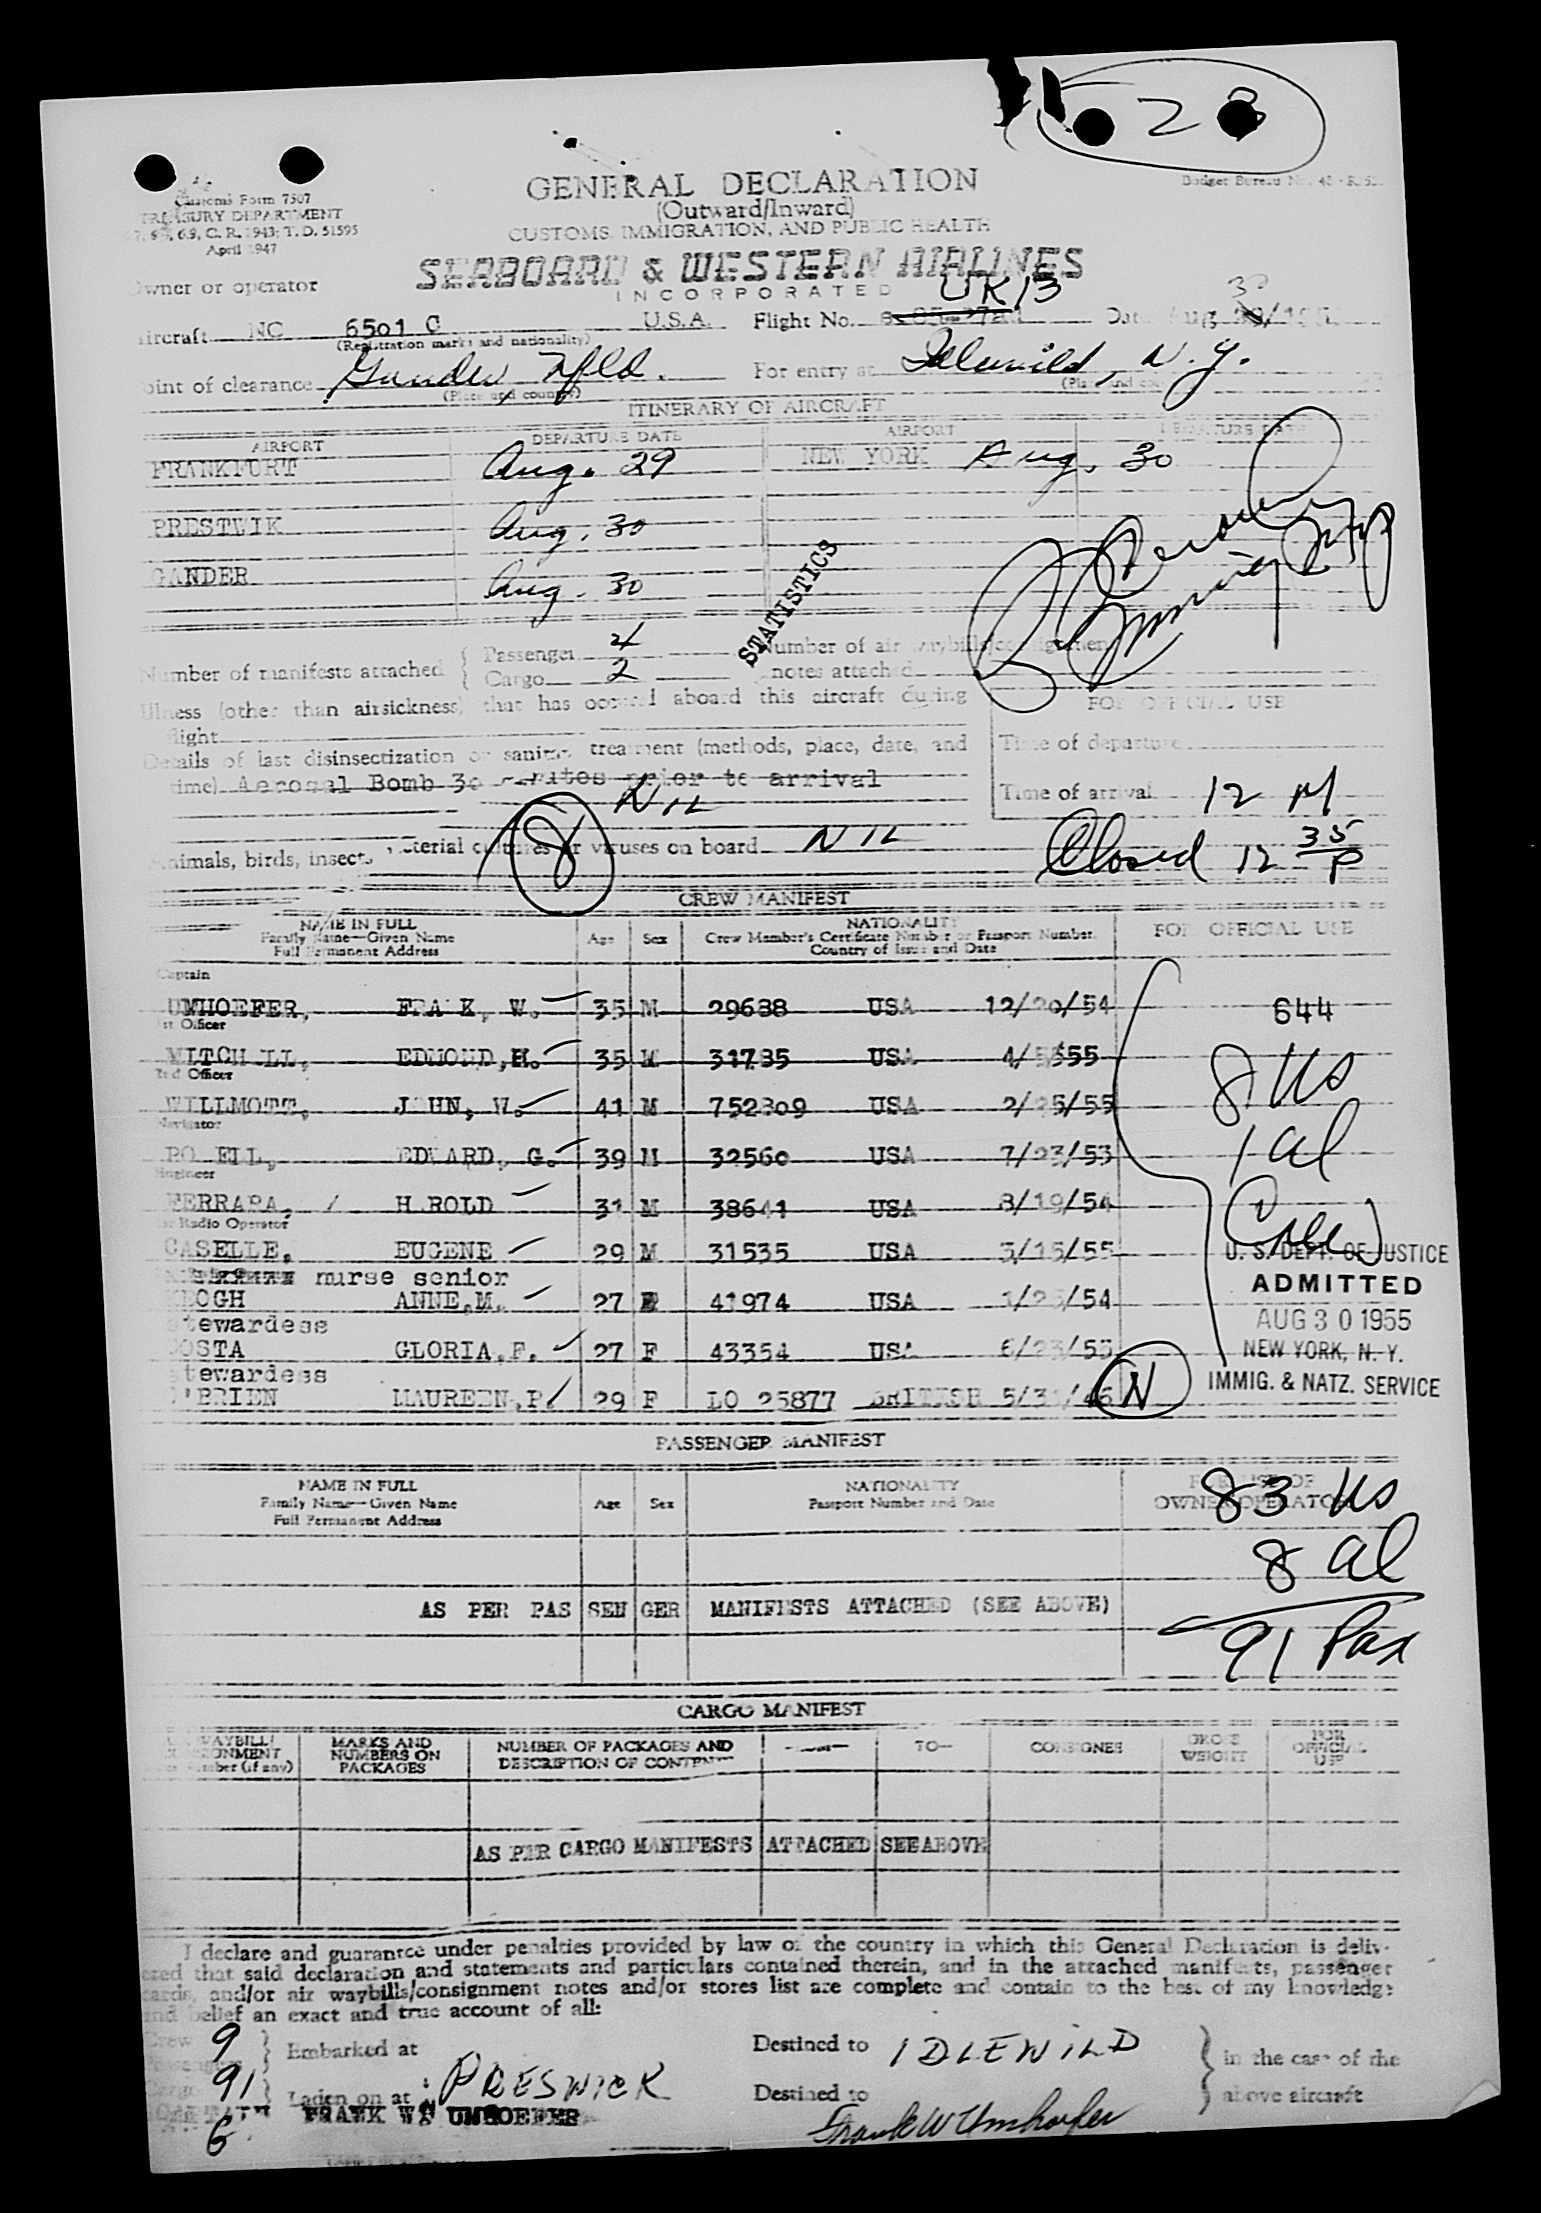 2 3
Customs Form 7507
TREASURY DEPARTMENT
6.9, C. R. 1943; T. D. 51595
April 1947
GENERAL DECLARATION
(Outward/Inward)
CUSTOMS, IMMIGRATION, AND PUBLIC HEALTH
Budget Bureau No.
SEABOARD & WESTERN AIRLINES
INCORPORATED
Owner or operator
UK13
30
Aircraft NC 6501 C U.S.A. Flight No. Date Aug
(Registration marks and nationality)
Point of clearance Gander, Nfld. For entry at Idlewild, N. Y.
(Place and country) (Place and
ITINERARY OF AIRCRAFT
AIRPORT DEPARTURE DATE AIRPORT DEPARTURE DATE
FRANKFURT Aug. 29 NEW YORK Aug. 30
PRESTWIK Aug. 30
GANDER Aug. 30
STATISTICS
Number of manifests attached { Passenger 4 Number of air waybills/consignment
Cargo 2 notes attached
Illness (other than airsickness) that has occurred aboard this aircraft during
flight
FOR OFFICIAL USE
Details of last disinsectization or sanitary treatment (methods, place, date, and
time) Aerosal Bomb 30 minutes prior to arrival
Nil
Time of departure
Time of arrival 12 M
Animals, birds, insects, bacterial cultures or viruses on board NIL
8
Closed 12 35 P
CREW MANIFEST
NAME IN FULL
Family Name—Given Name
Full Permanent Address
Age Sex
NATIONALITY
Crew Member's Certificate Number or Passport Number.
Country of Issue and Date
FOR OFFICIAL USE
Captain
UMHOEFER, FRANK, W. 35 M 29688 USA 12/20/54 644
1st Officer
MITCHELL, EDMOND, H. 35 M 31785 USA
2nd Officer
WILLMOTT, JOHN, W. 41 M 752809 USA 2/25/55 8 US
Navigator
EDWARD, G. 39 M 32560 USA 7/23/53 1 al
Engineer
FERRARA, HAROLD 31 M 38641 USA 8/19/54
Radio Operator
CASELLE, EUGENE 29 M 31535 USA 3/15/55
nurse senior
ANNE,M. 27 F 41974 USA
stewardess
COSTA GLORIA,F. 27 F 43354 USA 6/23/55
stewardess
O'BRIEN MAUREEN,P. 29 F LO 25877 BRITISH N
U. S. DEPT. OF JUSTICE
ADMITTED
AUG 30 1955
NEW YORK, N. Y.
IMMIG. & NATZ. SERVICE
PASSENGER MANIFEST
NAME IN FULL
Family Name—Given Name
Full Permanent Address
Age Sex
NATIONALITY
Passport Number and Date
FOR USE OF
OWNER/OPERATOR
83 US
8 al
AS PER PAS SEN GER MANIFESTS ATTACHED (SEE ABOVE)
91 Pax
CARGO MANIFEST
MARKS AND
NUMBERS ON
PACKAGES
NUMBER OF PACKAGES AND
DESCRIPTION OF CONTENTS
TO— CONSIGNEE
GROSS
WEIGHT
FOR
OFFICIAL
USE
AS PER CARGO MANIFESTS ATTACHED SEE ABOVE
I declare and guarantee under penalties provided by law of the country in which this General Declaration is deliv-
ered that said declaration and statements and particulars contained therein, and in the attached manifests, passenger
cards, and/or air waybills/consignment notes and/or stores list are complete and contain to the best of my knowledge
and belief an exact and true account of all:
Crew 9
Passengers 91
Embarked at
Destined to IDLEWILD
in the case of the
Cargo
Laden on at PRESWICK
Destined to
above aircraft
CAPTAIN FRANK W. UMHOEFER
6
Frank W Umhoefer